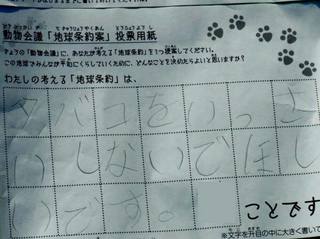 動物会議「地球条約案」投票用紙
きょうの「動物会議」に、あなたが考える「地球条約」を1つ提案してください。
この地球でみんなが平和にくらしていくために、どんなことを決めたらよいと思いますか?
わたしの考える「地球条約」は、
タバコをいっさ
いしないでほし
いです。
ことです
※文字を升目の中に大きく書いて